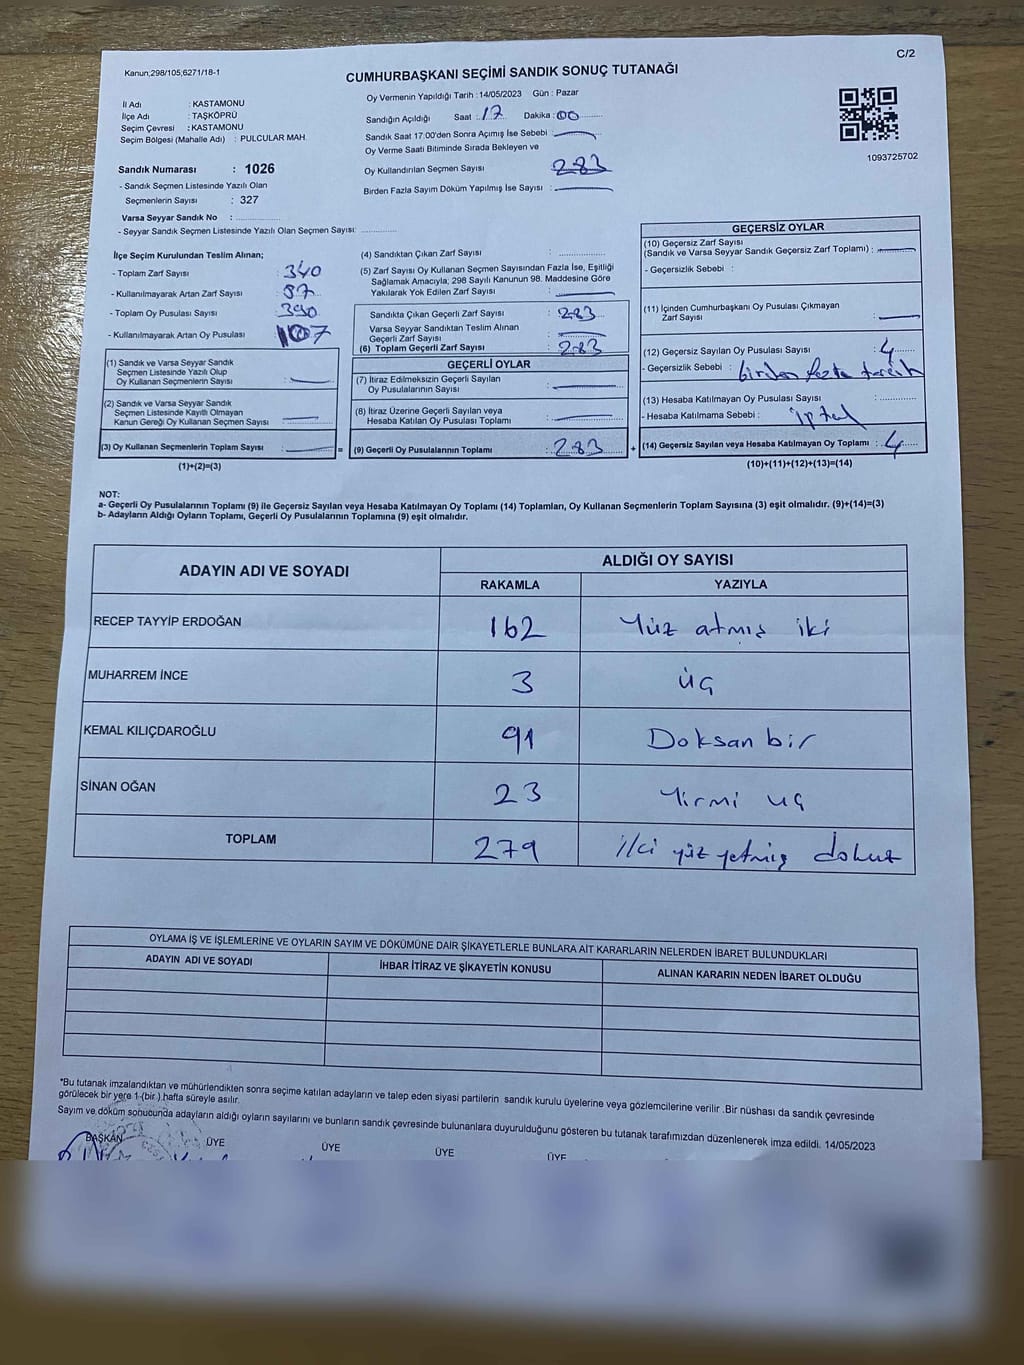 Kanun;298/105;6271/18-1
C/2
CUMHURBAŞKANI SEÇİMİ SANDIK SONUÇ TUTANAĞI
İl Adı : KASTAMONU
İlçe Adı : TAŞKÖPRÜ
Seçim Çevresi : KASTAMONU
Seçim Bölgesi (Mahalle Adı) : PULCULAR MAH.
Sandık Numarası : 1026
- Sandık Seçmen Listesinde Yazılı Olan
Seçmenlerin Sayısı : 327
Varsa Seyyar Sandık No :
- Seyyar Sandık Seçmen Listesinde Yazılı Olan Seçmen Sayısı:
Oy Vermenin Yapıldığı Tarih :14/05/2023 Gün : Pazar
Sandığın Açıldığı Saat : 17 Dakika : 00
Sandık Saat 17:00'den Sonra Açımış İse Sebebi :
Oy Verme Saati Bitiminde Sırada Bekleyen ve
Oy Kullandırılan Seçmen Sayısı 283
Birden Fazla Sayım Döküm Yapılmış İse Sayısı :
1093725702
İlçe Seçim Kurulundan Teslim Alınan;
- Toplam Zarf Sayısı : 340
- Kullanılmayarak Artan Zarf Sayısı :
- Toplam Oy Pusulası Sayısı : 390
- Kullanılmayarak Artan Oy Pusulası : 107
(1) Sandık ve Varsa Seyyar Sandık
Seçmen Listesinde Yazılı Olup
Oy Kullanan Seçmenlerin Sayısı :
(2) Sandık ve Varsa Seyyar Sandık
Seçmen Listesinde Kayıtlı Olmayan
Kanun Gereği Oy Kullanan Seçmen Sayısı
(3) Oy Kullanan Seçmenlerin Toplam Sayısı :
(1)+(2)=(3)
(4) Sandıktan Çıkan Zarf Sayısı :
(5) Zarf Sayısı Oy Kullanan Seçmen Sayısından Fazla İse, Eşitliği
Sağlamak Amacıyla; 298 Sayılı Kanunun 98. Maddesine Göre
Yakılarak Yok Edilen Zarf Sayısı :
Sandıkta Çıkan Geçerli Zarf Sayısı : 283
Varsa Seyyar Sandıktan Teslim Alınan
Geçerli Zarf Sayısı :
(6) Toplam Geçerli Zarf Sayısı : 283
GEÇERLİ OYLAR
(7) İtiraz Edilmeksizin Geçerli Sayılan
Oy Pusulalarının Sayısı :
(8) İtiraz Üzerine Geçerli Sayılan veya
Hesaba Katılan Oy Pusulası Toplamı :
= (9) Geçerli Oy Pusulalarının Toplamı : 283 +
GEÇERSİZ OYLAR
(10) Geçersiz Zarf Sayısı
(Sandık ve Varsa Seyyar Sandık Geçersiz Zarf Toplamı) :
- Geçersizlik Sebebi :
(11) İçinden Cumhurbaşkanı Oy Pusulası Çıkmayan
Zarf Sayısı :
(12) Geçersiz Sayılan Oy Pusulası Sayısı : 4
- Geçersizlik Sebebi : birden fazla tercih
(13) Hesaba Katılmayan Oy Pusulası Sayısı :
- Hesaba Katılmama Sebebi : iptal
(14) Geçersiz Sayılan veya Hesaba Katılmayan Oy Toplamı : 4
(10)+(11)+(12)+(13)=(14)
NOT:
a- Geçerli Oy Pusulalarının Toplamı (9) ile Geçersiz Sayılan veya Hesaba Katılmayan Oy Toplamı (14) Toplamları, Oy Kullanan Seçmenlerin Toplam Sayısına (3) eşit olmalıdır. (9)+(14)=(3)
b- Adayların Aldığı Oyların Toplamı, Geçerli Oy Pusulalarının Toplamına (9) eşit olmalıdır.
ADAYIN ADI VE SOYADI ALDIĞI OY SAYISI
RAKAMLA YAZIYLA
RECEP TAYYİP ERDOĞAN 162 Yüz atmış iki
MUHARREM İNCE 3 üç
KEMAL KILIÇDAROĞLU 91 Doksan bir
SİNAN OĞAN 23 Yirmi üç
TOPLAM 279 iki yüz yetmiş dokuz
OYLAMA İŞ VE İŞLEMLERİNE VE OYLARIN SAYIM VE DÖKÜMÜNE DAİR ŞİKAYETLERLE BUNLARA AİT KARARLARIN NELERDEN İBARET BULUNDUKLARI
ADAYIN ADI VE SOYADI İHBAR İTİRAZ VE ŞİKAYETİN KONUSU ALINAN KARARIN NEDEN İBARET OLDUĞU
*Bu tutanak imzalandıktan ve mühürlendikten sonra seçime katılan adayların ve talep eden siyasi partilerin sandık kurulu üyelerine veya gözlemcilerine verilir .Bir nüshası da sandık çevresinde
görülecek bir yere 1 (bir ) hafta süreyle asılır.
Sayım ve döküm sonucunda adayların aldığı oyların sayılarını ve bunların sandık çevresinde bulunanlara duyurulduğunu gösteren bu tutanak tarafımızdan düzenlenerek imza edildi. 14/05/2023
BAŞKAN ÜYE ÜYE ÜYE ÜYE